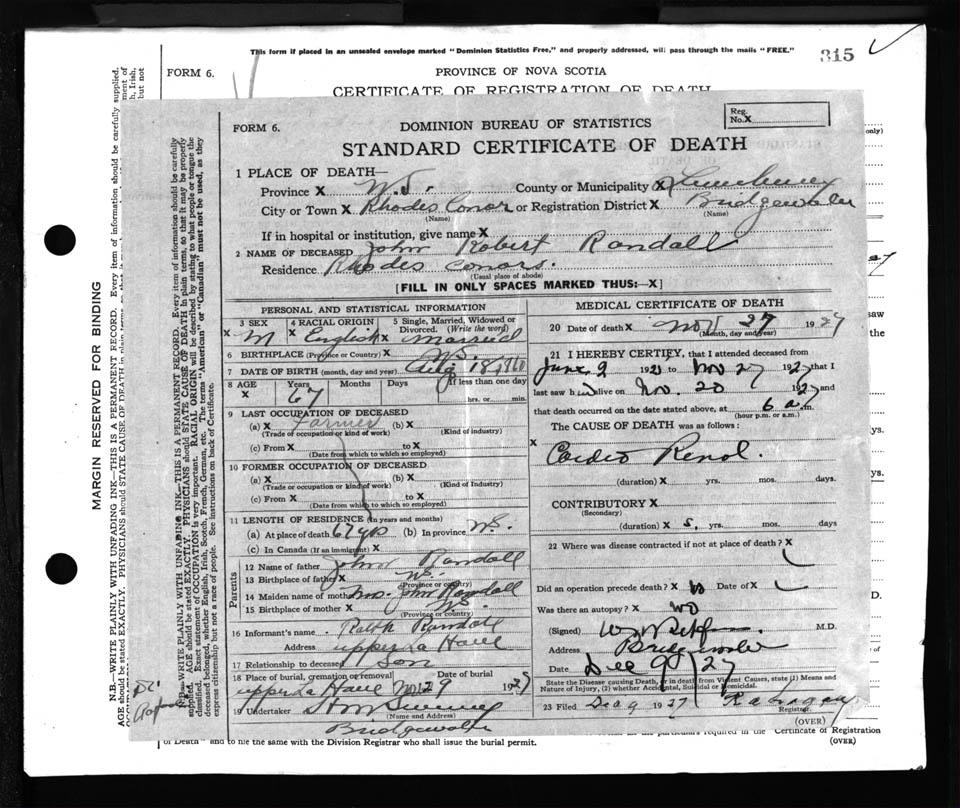 This form if placed in an unsealed envelope marked "Dominion Statistics Free," and properly addressed, will pass through the mails "FREE."
315
FORM 6.
PROVINCE OF NOVA SCOTIA
CERTIFICATE OF REGISTRATION OF DEATH
MARGIN RESERVED FOR BINDING
N.B.—WRITE PLAINLY WITH UNFADING INK—THIS IS A PERMANENT RECORD. Every item of information should be carefully supplied.
AGE should be stated EXACTLY. PHYSICIANS should STATE CAUSE OF DEATH
N.B.—WRITE PLAINLY WITH UNFADING INK—THIS IS A PERMANENT RECORD. Every item of information should be carefully
supplied. AGE should be stated EXACTLY. PHYSICIANS should STATE CAUSE OF DEATH in plain terms, so that it may be properly
classified. Exact statement of OCCUPATION is very important. RACIAL ORIGIN will be described by stating to what people or tongue the
deceased belonged, whether English, Irish, Scotch, French, German, etc. The terms "American" or "Canadian" must not be used, as they
express citizenship but not a race of people. See instructions on back of Certificate.
FORM 6.
DOMINION BUREAU OF STATISTICS
Reg. No. X
STANDARD CERTIFICATE OF DEATH
1 PLACE OF DEATH—
Province X N.S. County or Municipality X Lunenburg
City or Town X Rhodes Conor or Registration District X Bridgewater
(Name) (Name)
If in hospital or institution, give name X
2 NAME OF DECEASED John Robert Randall
Residence Rhodes Conors.
(Usual place of abode)
[FILL IN ONLY SPACES MARKED THUS:—X]
PERSONAL AND STATISTICAL INFORMATION
3 SEX X M 4 RACIAL ORIGIN X English 5 Single, Married, Widowed or Divorced. (Write the word) X Married
6 BIRTHPLACE (Province or Country) X N.S.
7 DATE OF BIRTH (month, day and year) Aug 18, 1860
8 AGE X Years 67 Months Days If less than one day
hrs. or min.
9 LAST OCCUPATION OF DECEASED
(a) X Farmer (b) X
(Trade or occupation or kind of work) (Kind of industry)
(c) From X to X
(Date from which to which so employed)
10 FORMER OCCUPATION OF DECEASED
(a) X (b) X
(Trade or occupation or kind of work) (Kind of Industry)
(c) From X to X
(Date from which to which so employed)
11 LENGTH OF RESIDENCE (In years and months)
(a) At place of death 67 yrs (b) In province N.S.
(c) In Canada (If an immigrant) X
Parents
12 Name of father John Randall
13 Birthplace of father X N.S.
(Province or country)
14 Maiden name of mother Mrs. John Randall
15 Birthplace of mother X N.S.
(Province or country)
16 Informant's name Ralph Randall
Address Upper La Have
17 Relationship to deceased Son
18 Place of burial, cremation or removal Date of burial
Upper La Have Nov 29 1927
19 Undertaker
(Name and Address)
Bridgewater
MEDICAL CERTIFICATE OF DEATH
20 Date of death X Nov 27 1927
(Month, day and year)
21 I HEREBY CERTIFY, that I attended deceased from
June 9 192 to Nov 27 1927 that I
last saw h im alive on No. 20 1927 and
that death occurred on the date stated above, at 6 a.m.
(hour p.m. or a.m.)
The CAUSE OF DEATH was as follows:
X Cardio Renol.
(duration) X yrs. mos. days.
CONTRIBUTORY X
(Secondary)
(duration) X 5. yrs. mos. days
22 Where was disease contracted if not at place of death? X
Did an operation precede death? X no Date of X
Was there an autopsy? X no
(Signed) M.D.
Address Bridgewater
Date Dec 9 / 27
State the Disease causing Death, or in death from Violent Causes, state (1) Means and
Nature of Injury, (2) whether Accidental, Suicidal or Homicidal.
23 Filed Dec 9 1927
Registrar.
(OVER)
of Death" and to file the same with the Division Registrar who shall issue the burial permit.
(OVER)